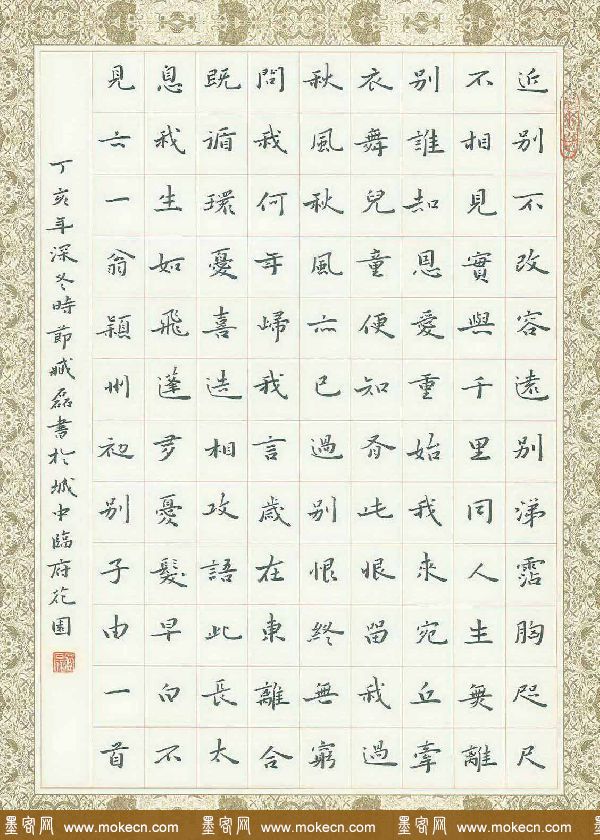 近别不改容遠别涕霑胸咫尺
不相見實與千里同人生無離
别誰知恩愛重始我來宛丘牽
衣舞兒童便知有此恨留我過
秋風秋風亦已過别恨終無窮
問我何年歸我言歲在東離合
既循環憂喜迭相攻語此長太
息我生如飛蓬多憂髮早白不
見六一翁潁州初别子由一首
丁亥年深冬時節臧磊書於城中臨府花園
墨客网 www.mokecn.com 墨客网 www.mokecn.com 墨客网 www.mokecn.com